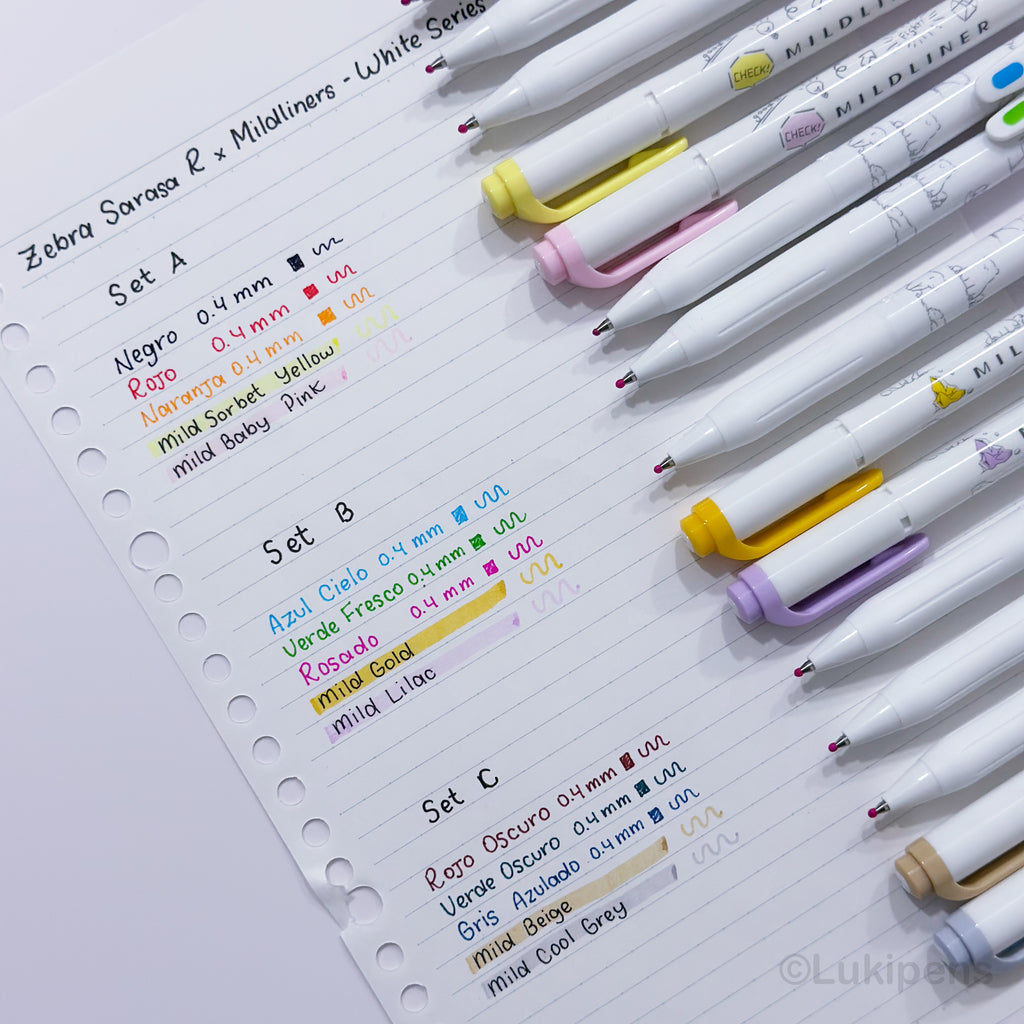 Zebra Sarasa R x Mildliners - White Series
Set A
Negro 0.4 mm
Rojo 0.4 mm
Naranja 0.4 mm
mild Sorbet Yellow
mild Baby Pink
Set B
Azul Cielo 0.4 mm
Verde Fresco 0.4 mm
Rosado 0.4 mm
mild Gold
mild Lilac
Set C
Rojo Oscuro 0.4 mm
Verde Oscuro 0.4 mm
Gris Azulado 0.4 mm
Mild Beige
Mild Cool Grey
CHECK! MILDLINER
CHECK! MILDLINER
Fight!
MIL
©Lukipens